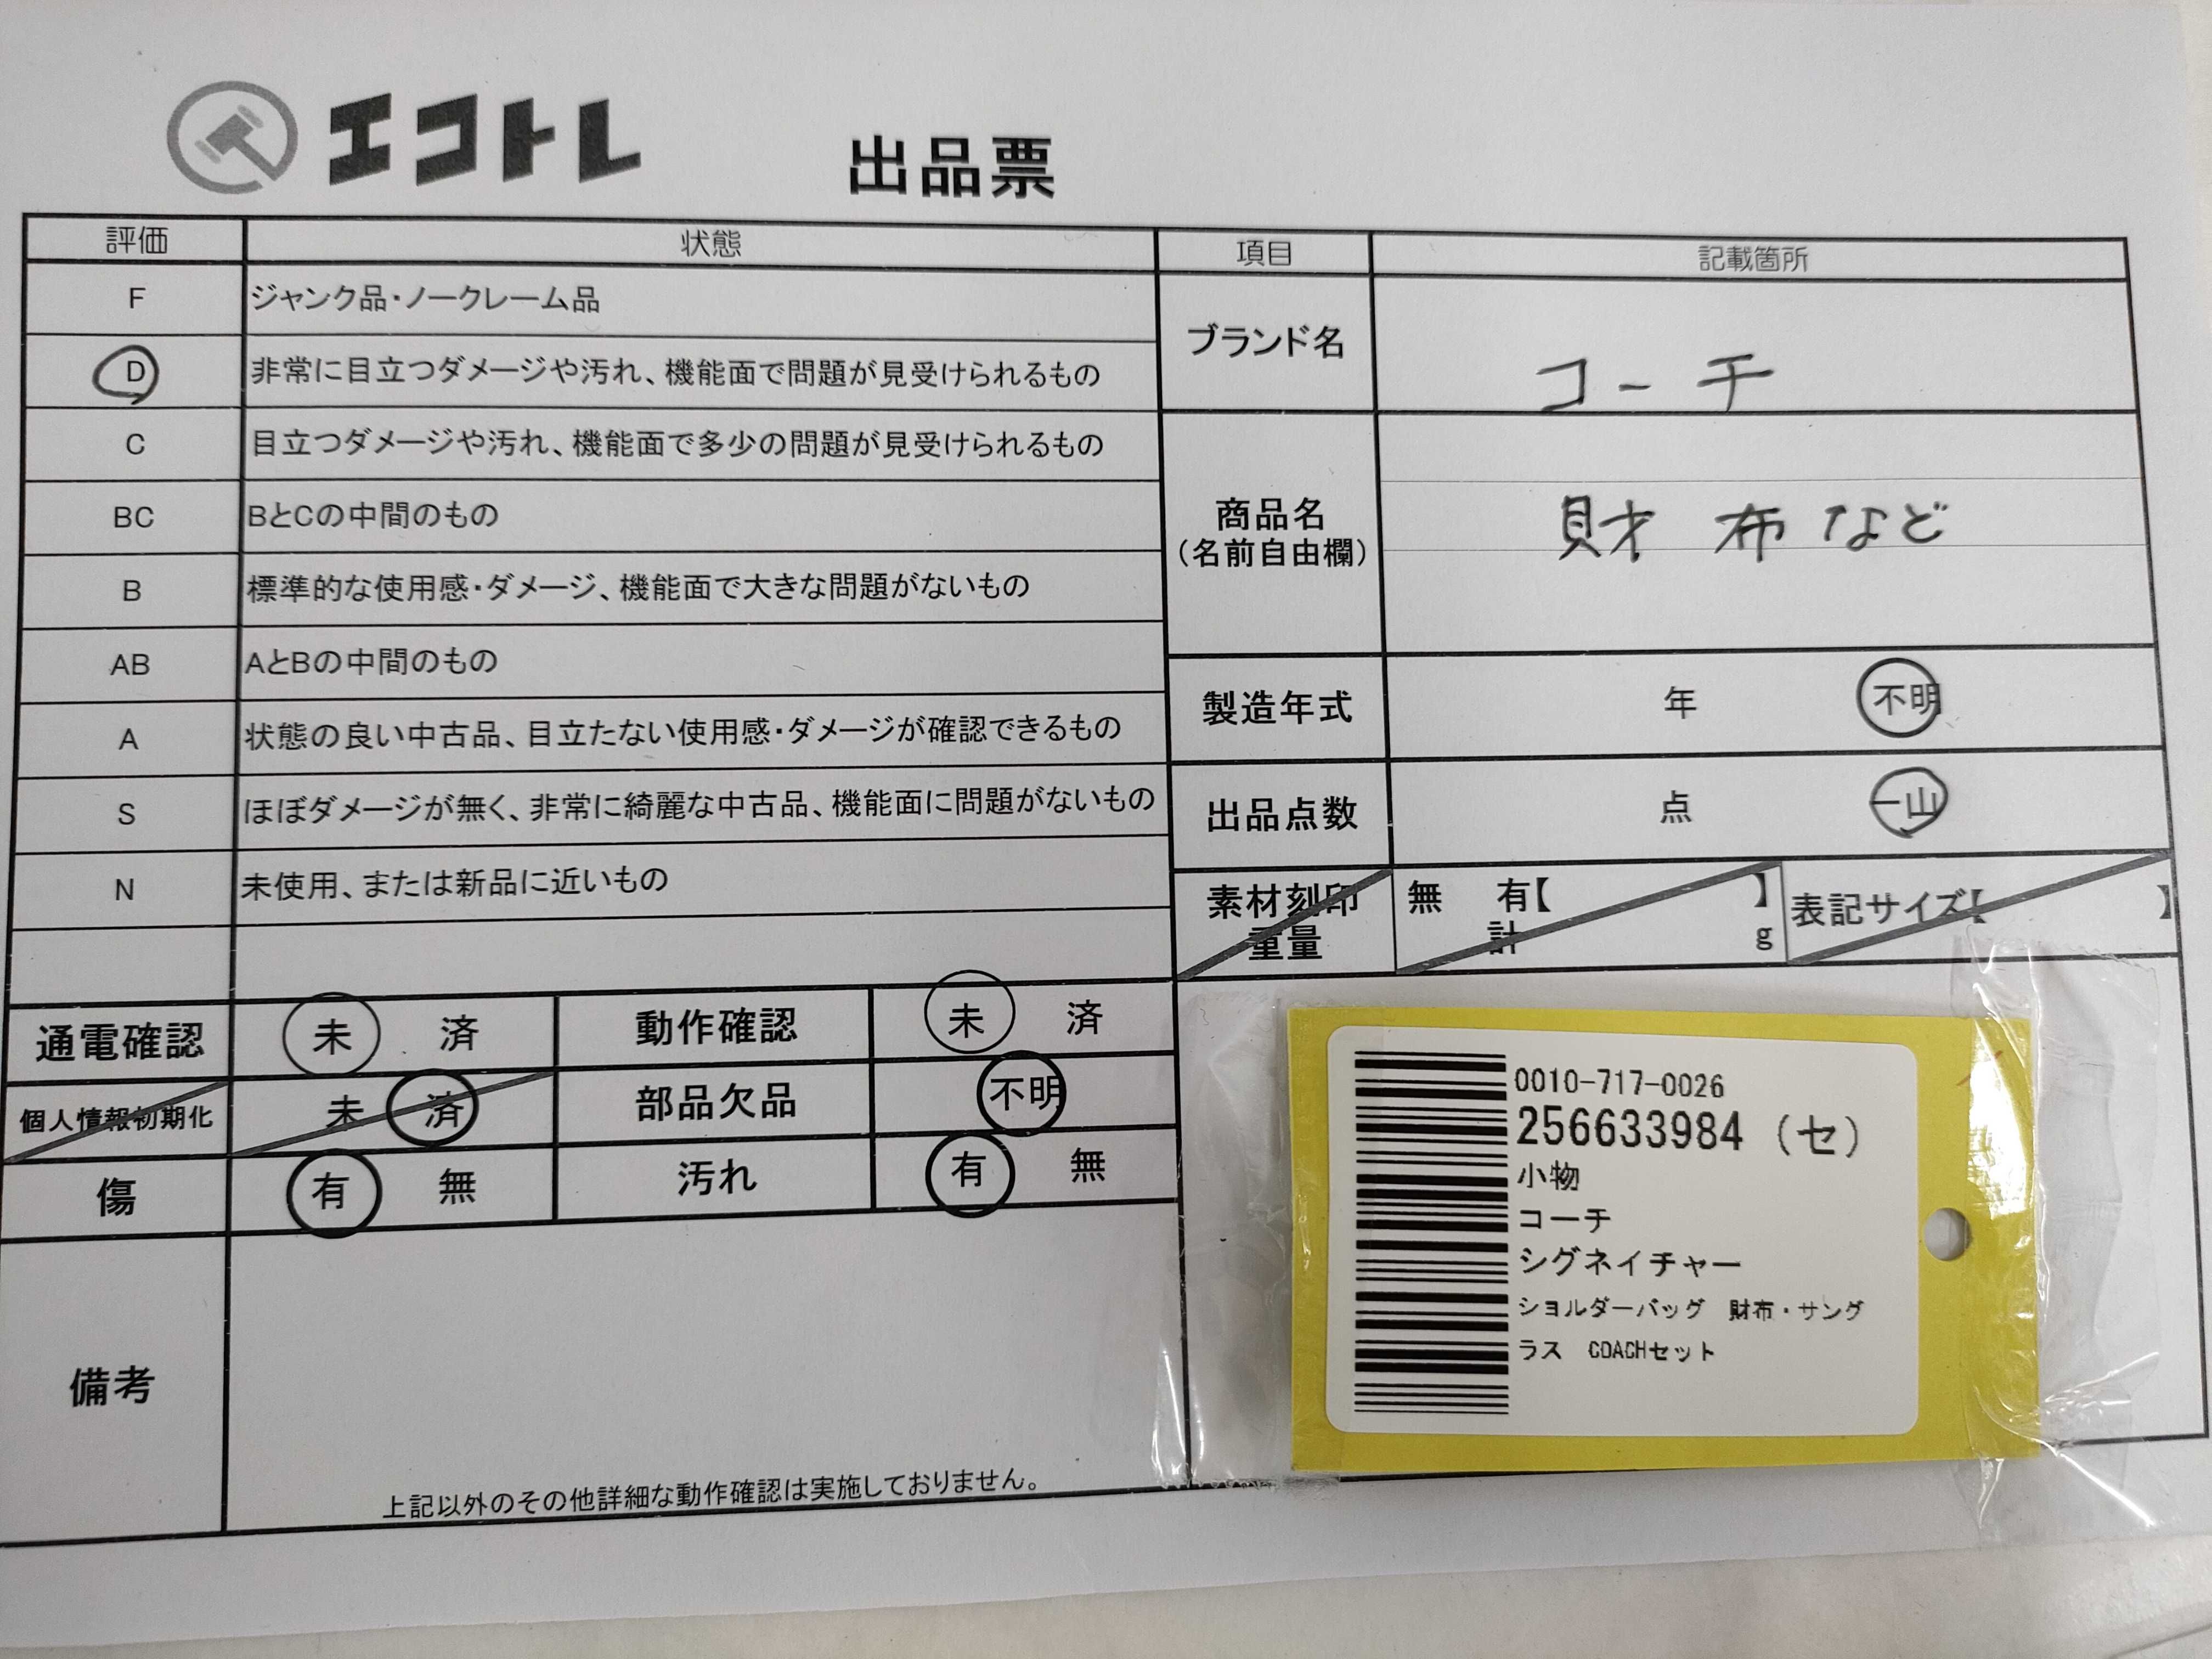 エコトレ 出品票
評価 状態 項目 記載箇所
F ジャンク品・ノークレーム品
D 非常に目立つダメージや汚れ、機能面で問題が見受けられるもの
C 目立つダメージや汚れ、機能面で多少の問題が見受けられるもの
BC BとCの中間のもの
B 標準的な使用感・ダメージ、機能面で大きな問題がないもの
AB AとBの中間のもの
A 状態の良い中古品、目立たない使用感・ダメージが確認できるもの
S ほぼダメージが無く、非常に綺麗な中古品、機能面に問題がないもの
N 未使用、または新品に近いもの
ブランド名 コーチ
商品名
(名前自由欄)
財布など
製造年式 年 不明
出品点数 点 一山
素材刻印 無 有【 】 表記サイズ【 】
重量 計 g
通電確認 未 済 動作確認 未 済
個人情報初期化 未 済 部品欠品 不明
傷 有 無 汚れ 有 無
備考
上記以外のその他詳細な動作確認は実施しておりません。
0010-717-0026
256633984 (セ)
小物
コーチ
シグネイチャー
ショルダーバッグ 財布・サング
ラス COACHセット